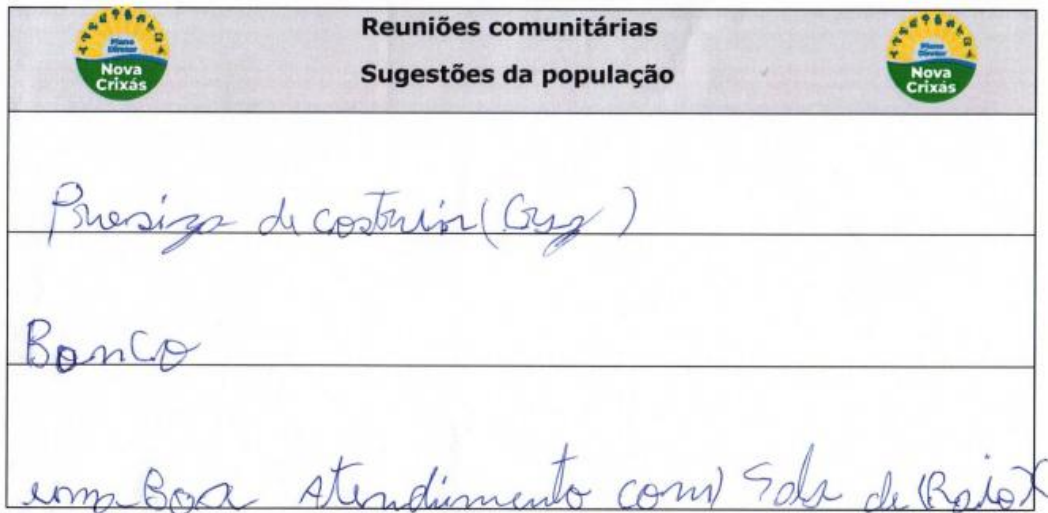 Plano Diretor
Nova Crixás
Reuniões comunitárias
Sugestões da população
Plano Diretor
Nova Crixás
de
Banco
uma Boa Atendimento com Sala de (Raio X